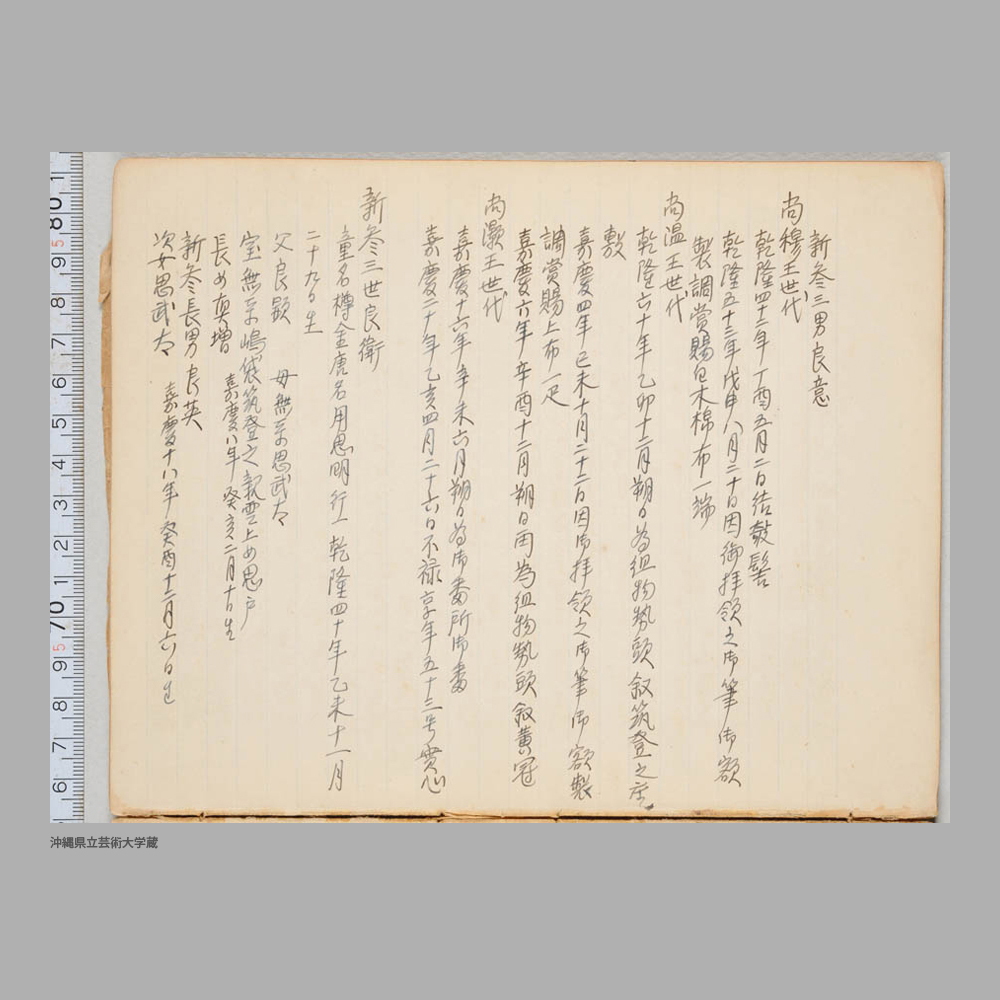 新参三男良意
尚穆王世代
乾隆四十二年丁酉五月二日結敧髻
乾隆五十三年戊申八月二十日因御拝領之御筆御額
製調賞賜白木棉布一端
尚温王世代
乾隆六十年乙卯十二月朔日為組物勢頭叙筑登之座
敷
嘉慶四年己未十月二十二日因御拝領之御筆御額製
調賞賜上布一疋
嘉慶六年辛酉十二月朔日再為組物勢頭叙黄冠
尚灝王世代
嘉慶十六年辛未六月朔日為御番所御番
嘉慶二十年乙亥四月二十六日不禄享年五十三号實心
新参三世良衛
童名樽金唐名用思明行一乾隆四十年乙未十一月
二十九日生
父良顕 母無系思武太
室無系嶋袋筑登之親雲上女思戸
長女真増 嘉慶八年癸亥二月十日生
新参長男良英
次女思武太 嘉慶十八年癸酉十二月六日生
沖縄県立芸術大学蔵
80
9
8
7
6
5
4
3
2
1
70
9
8
7
6